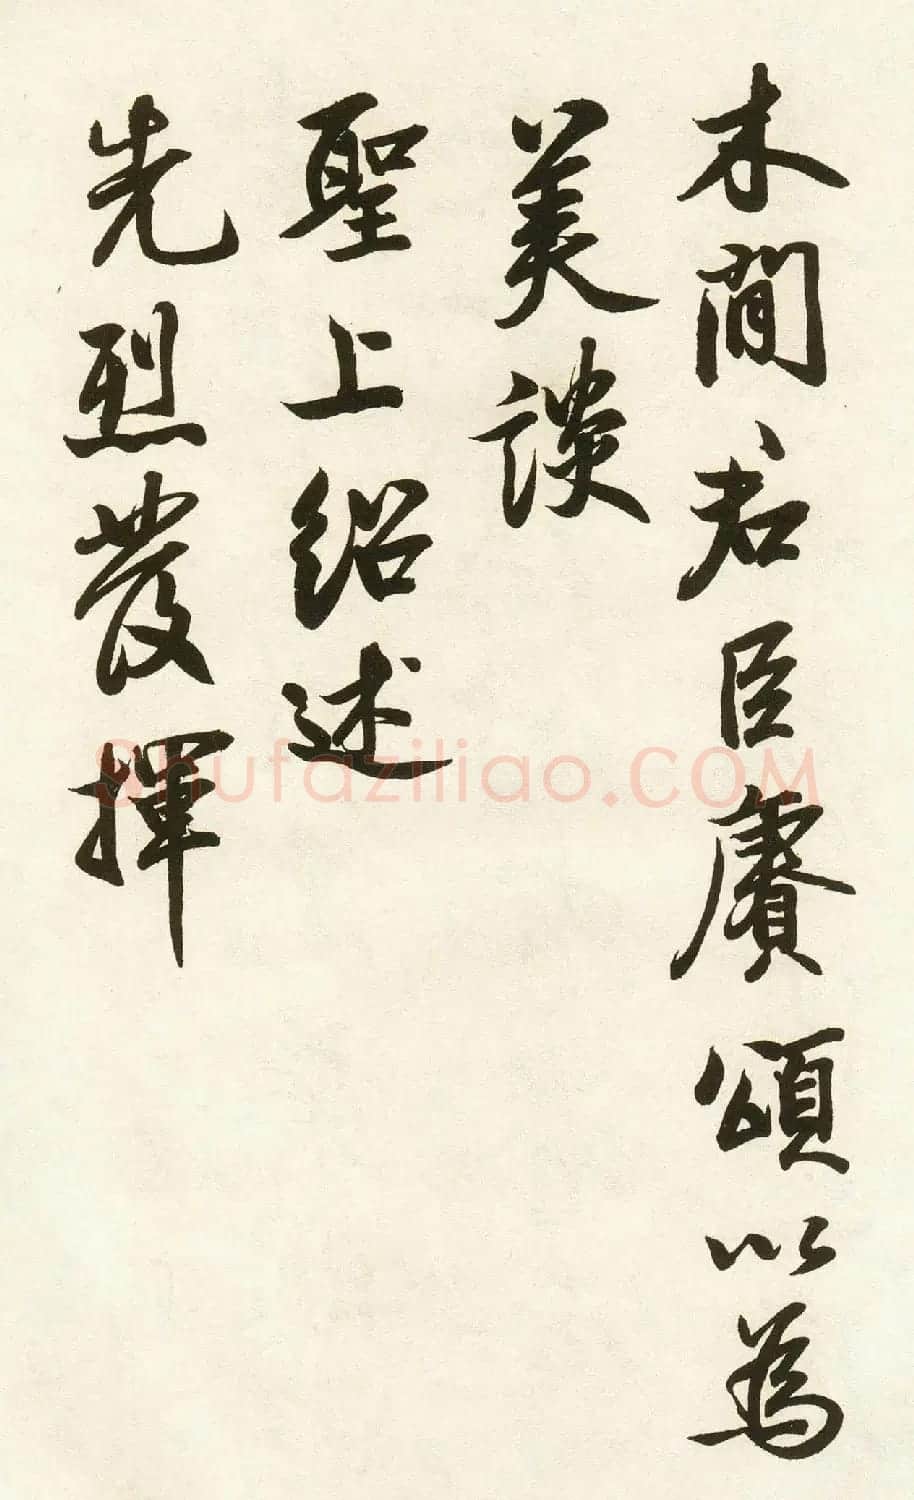 末間君臣賡頌以為
美談
聖上紹述
先烈發揮
Shufaziliao.COM